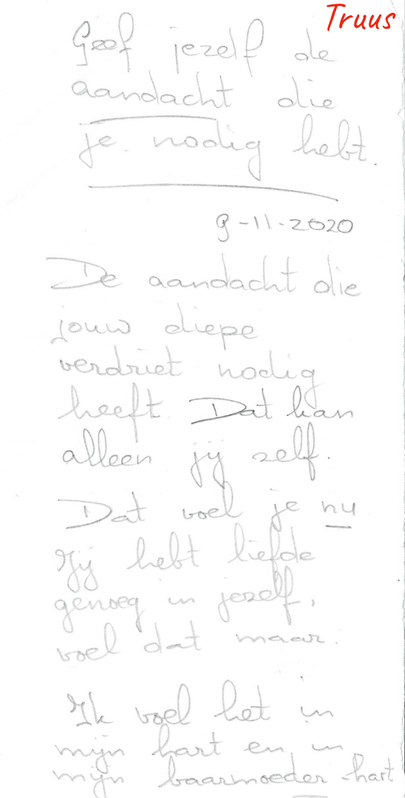 Truus
Geef jezelf de
aandacht die
je nodig hebt.
9-11-2020
De aandacht die
jouw diepe
verdriet nodig
heeft. Dat kan
alleen jij zelf.
Dat voel je nu
Jij hebt liefde
genoeg in jezelf,
voel dat maar.
Ik voel het in
mijn hart en in
mijn baarmoeder-hart